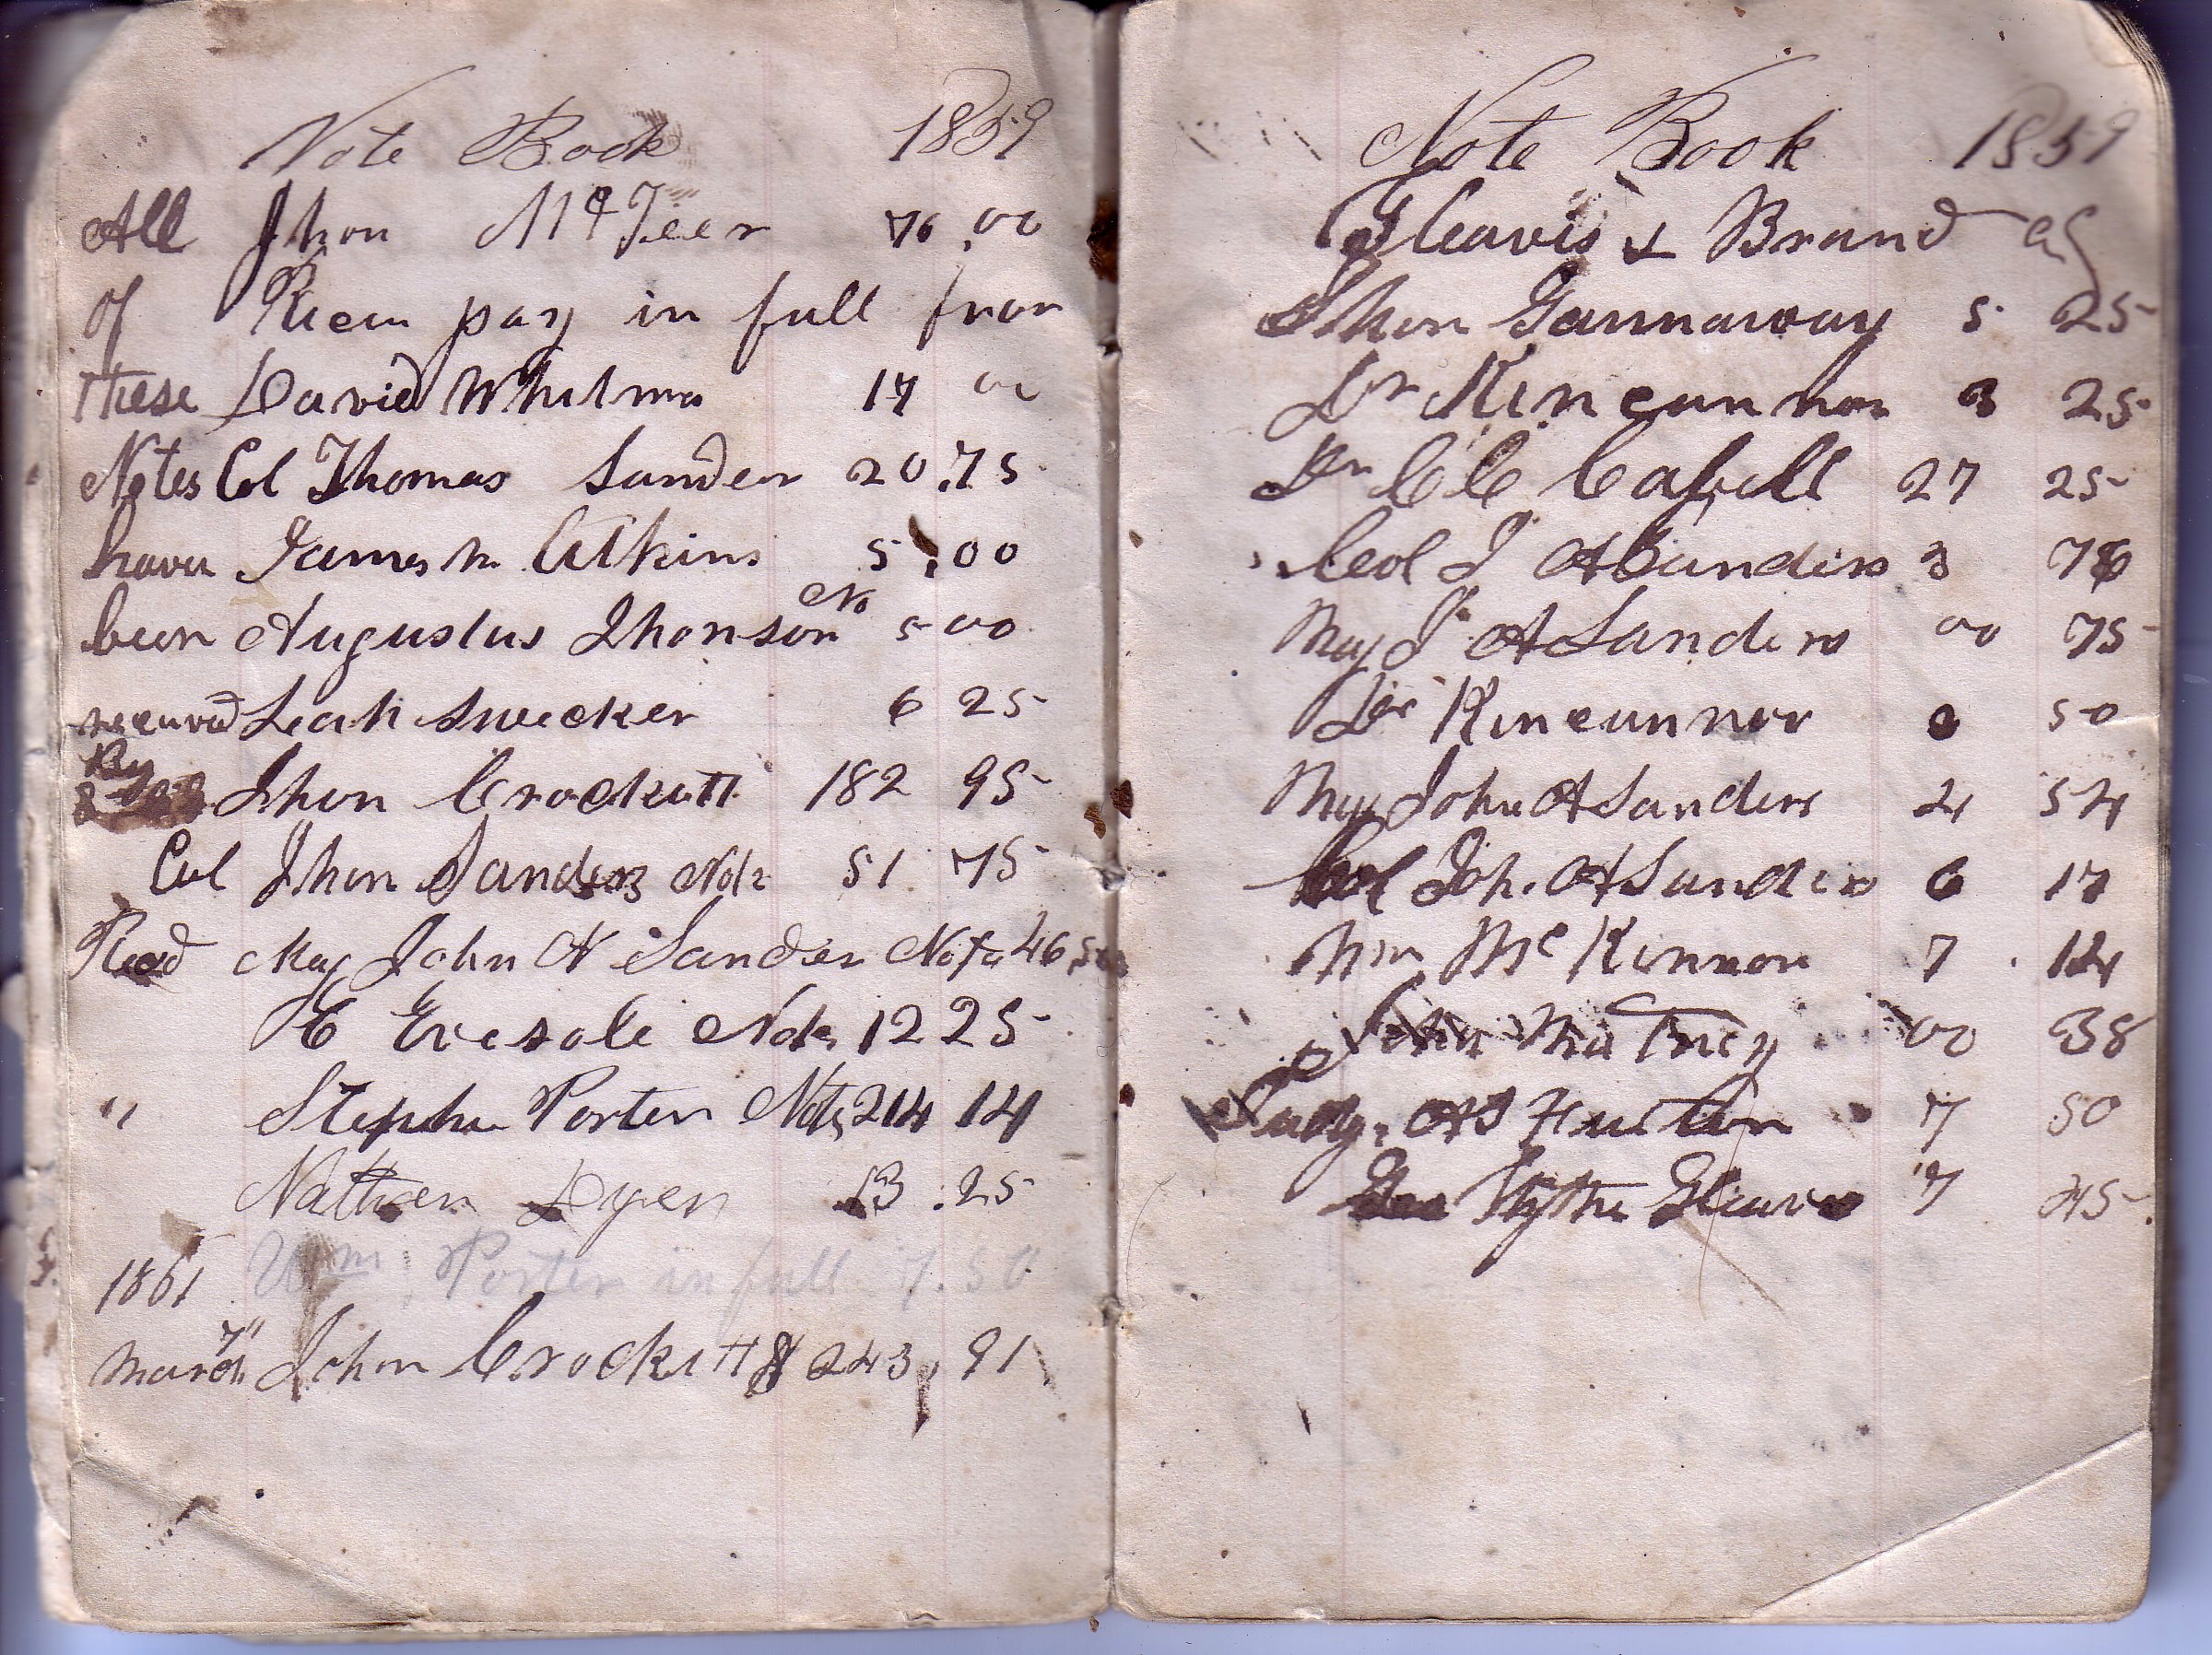 Note Book 1859
All Jhon McTeer 76.00
of Recm pay in full from
These David Whitma 17 00
Notes Col Thomas Sander 20.75
have James M Atkins 5.00
been Augustus Jhonson No 5 00
received Leah Swecker 6 25
By Jhon Crockett 182 95
Col Jhon Sanders Note 51 75
Recd Maj John A Sander Note 46
E Evesole Note 12 25
" Stephn Porter Note 214 14
Nathen Dyer 13.25
1861 Wm. Porter in full 7.50
March 7" John Crockett $ 243,91
Note Book 1859
Gleavis & Brand
Jhon Gannaway 5 25
Dr Kincannon 3 25
Dr C C Cabell 27 25
Col J A Sanders 3
Maj J A Sanders 00 75
Dr Kincannor 0 50
Maj John A Sanders 2 54
Col Joh. A Sanders 6 17
Wm McKinnon 7 . 14
John Ma Tney 00 38
Judg. 7 50
Wythe Gleaves 7 45.